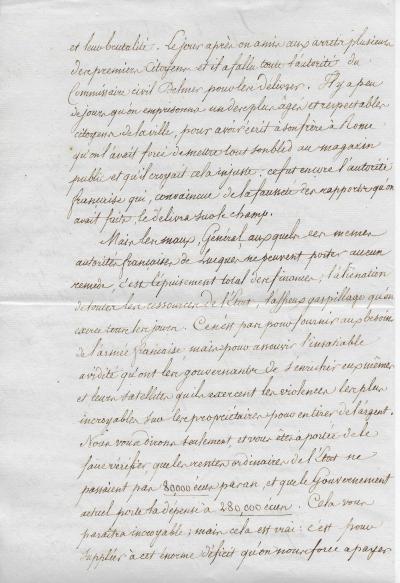 et leur brutalité. Le jour après on a mis aux arrets plusieurs
des premiers Citoyens et il a fallu toute l'autorité du
Commissaire civil pour les délivrer. Il y a peu
de jours qu'on emprisonna un des plus âgés et respectables
citoyens de la ville, pour avoir écrit à son frère à Rome
qu'on l'avait forcé de mettre tout son bled au magasin
public et qu'il croyait cela injuste. ce fut encore l'autorité
française qui, convaincue de la fausseté des rapports qu'on
avait faits, le délivra sur le champ.
Mais les maux, Général, auxquels ces mêmes
autorités françaises de Lucques ne peuvent porter aucun
remède, c'est l'épuisement total des finances, l'aliénation
de toutes les ressources de l'Etat, l'affreux gaspillage qu'on
exerce tous les jours. Ce n'est pas pour fournir aux besoins
de l'armée française mais pour assouvir l'insatiable
avidité qu'ont les gouvernants de s'enrichir eux mêmes
et leurs satellites qu'ils exercent les violences les plus
incroyables sur les propriétaires pour en tirer de l'argent.
Nous vous dirons seulement et vous êtes à portée de le
faire vérifier, que les rentes ordinaires de l'Etat ne
passaient pas 80,000 écus par an, et que le Gouvernement
actuel porte la dépense à 280,000 écus. Cela vous
paraîtra incroyable; mais cela est vrai: c'est pour
suppléer à cet énorme déficit qu'on nous force a payer